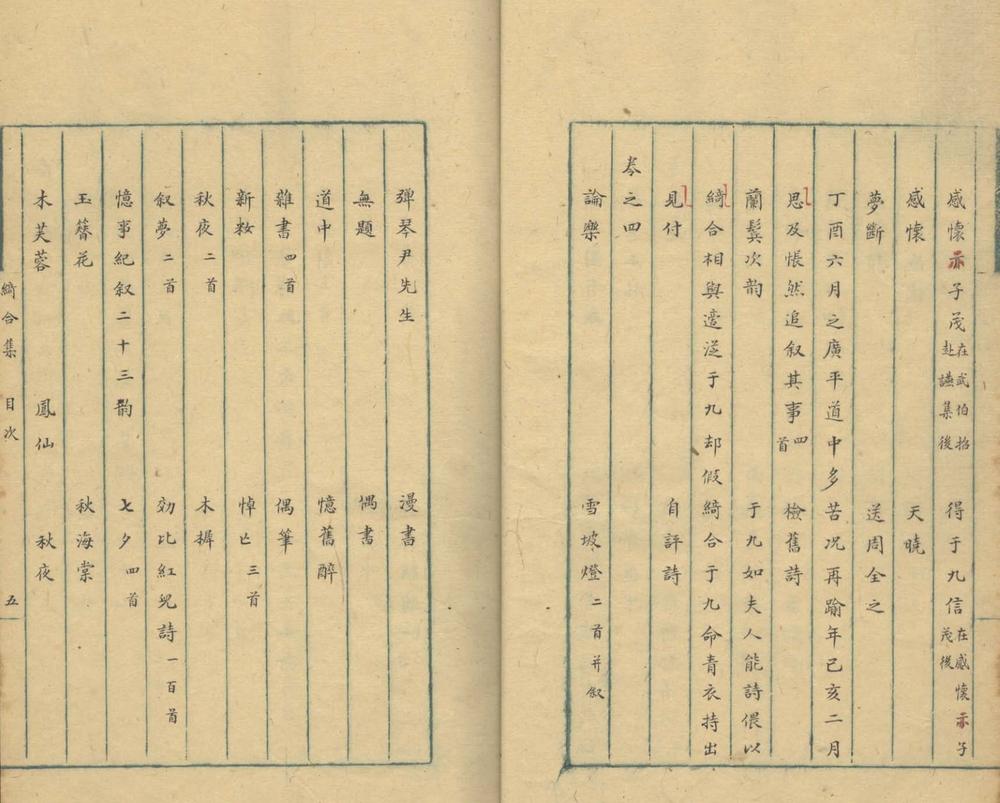 感懷示子茂在武伯招赴讌集後 得于九信在感懷示子茂後
感懷 天曉
夢斷 送周全之
丁酉六月之廣平道中多苦况再踰年已亥二月
思及悵然追叙其事四首 檢舊詩
蘭鬓次韵 于九如夫人能詩偎以
綺合相與遝泛于九却假綺合于九命青衣持出
見付 自評詩
卷之四
論樂 雪坡燈二首并叙
彈琴尹先生 漫書
無題 偶書
道中 憶舊酔
雜書四首 偶筆
新敉 悼亡三首
秋夜二首 木樨
叙夢二首 効比紅兒詩一百首
憶事紀叙二十三韵 七夕四首
玉簪花 秋海棠
木芙蓉 鳳仙 秋夜
綺合集 目次 五